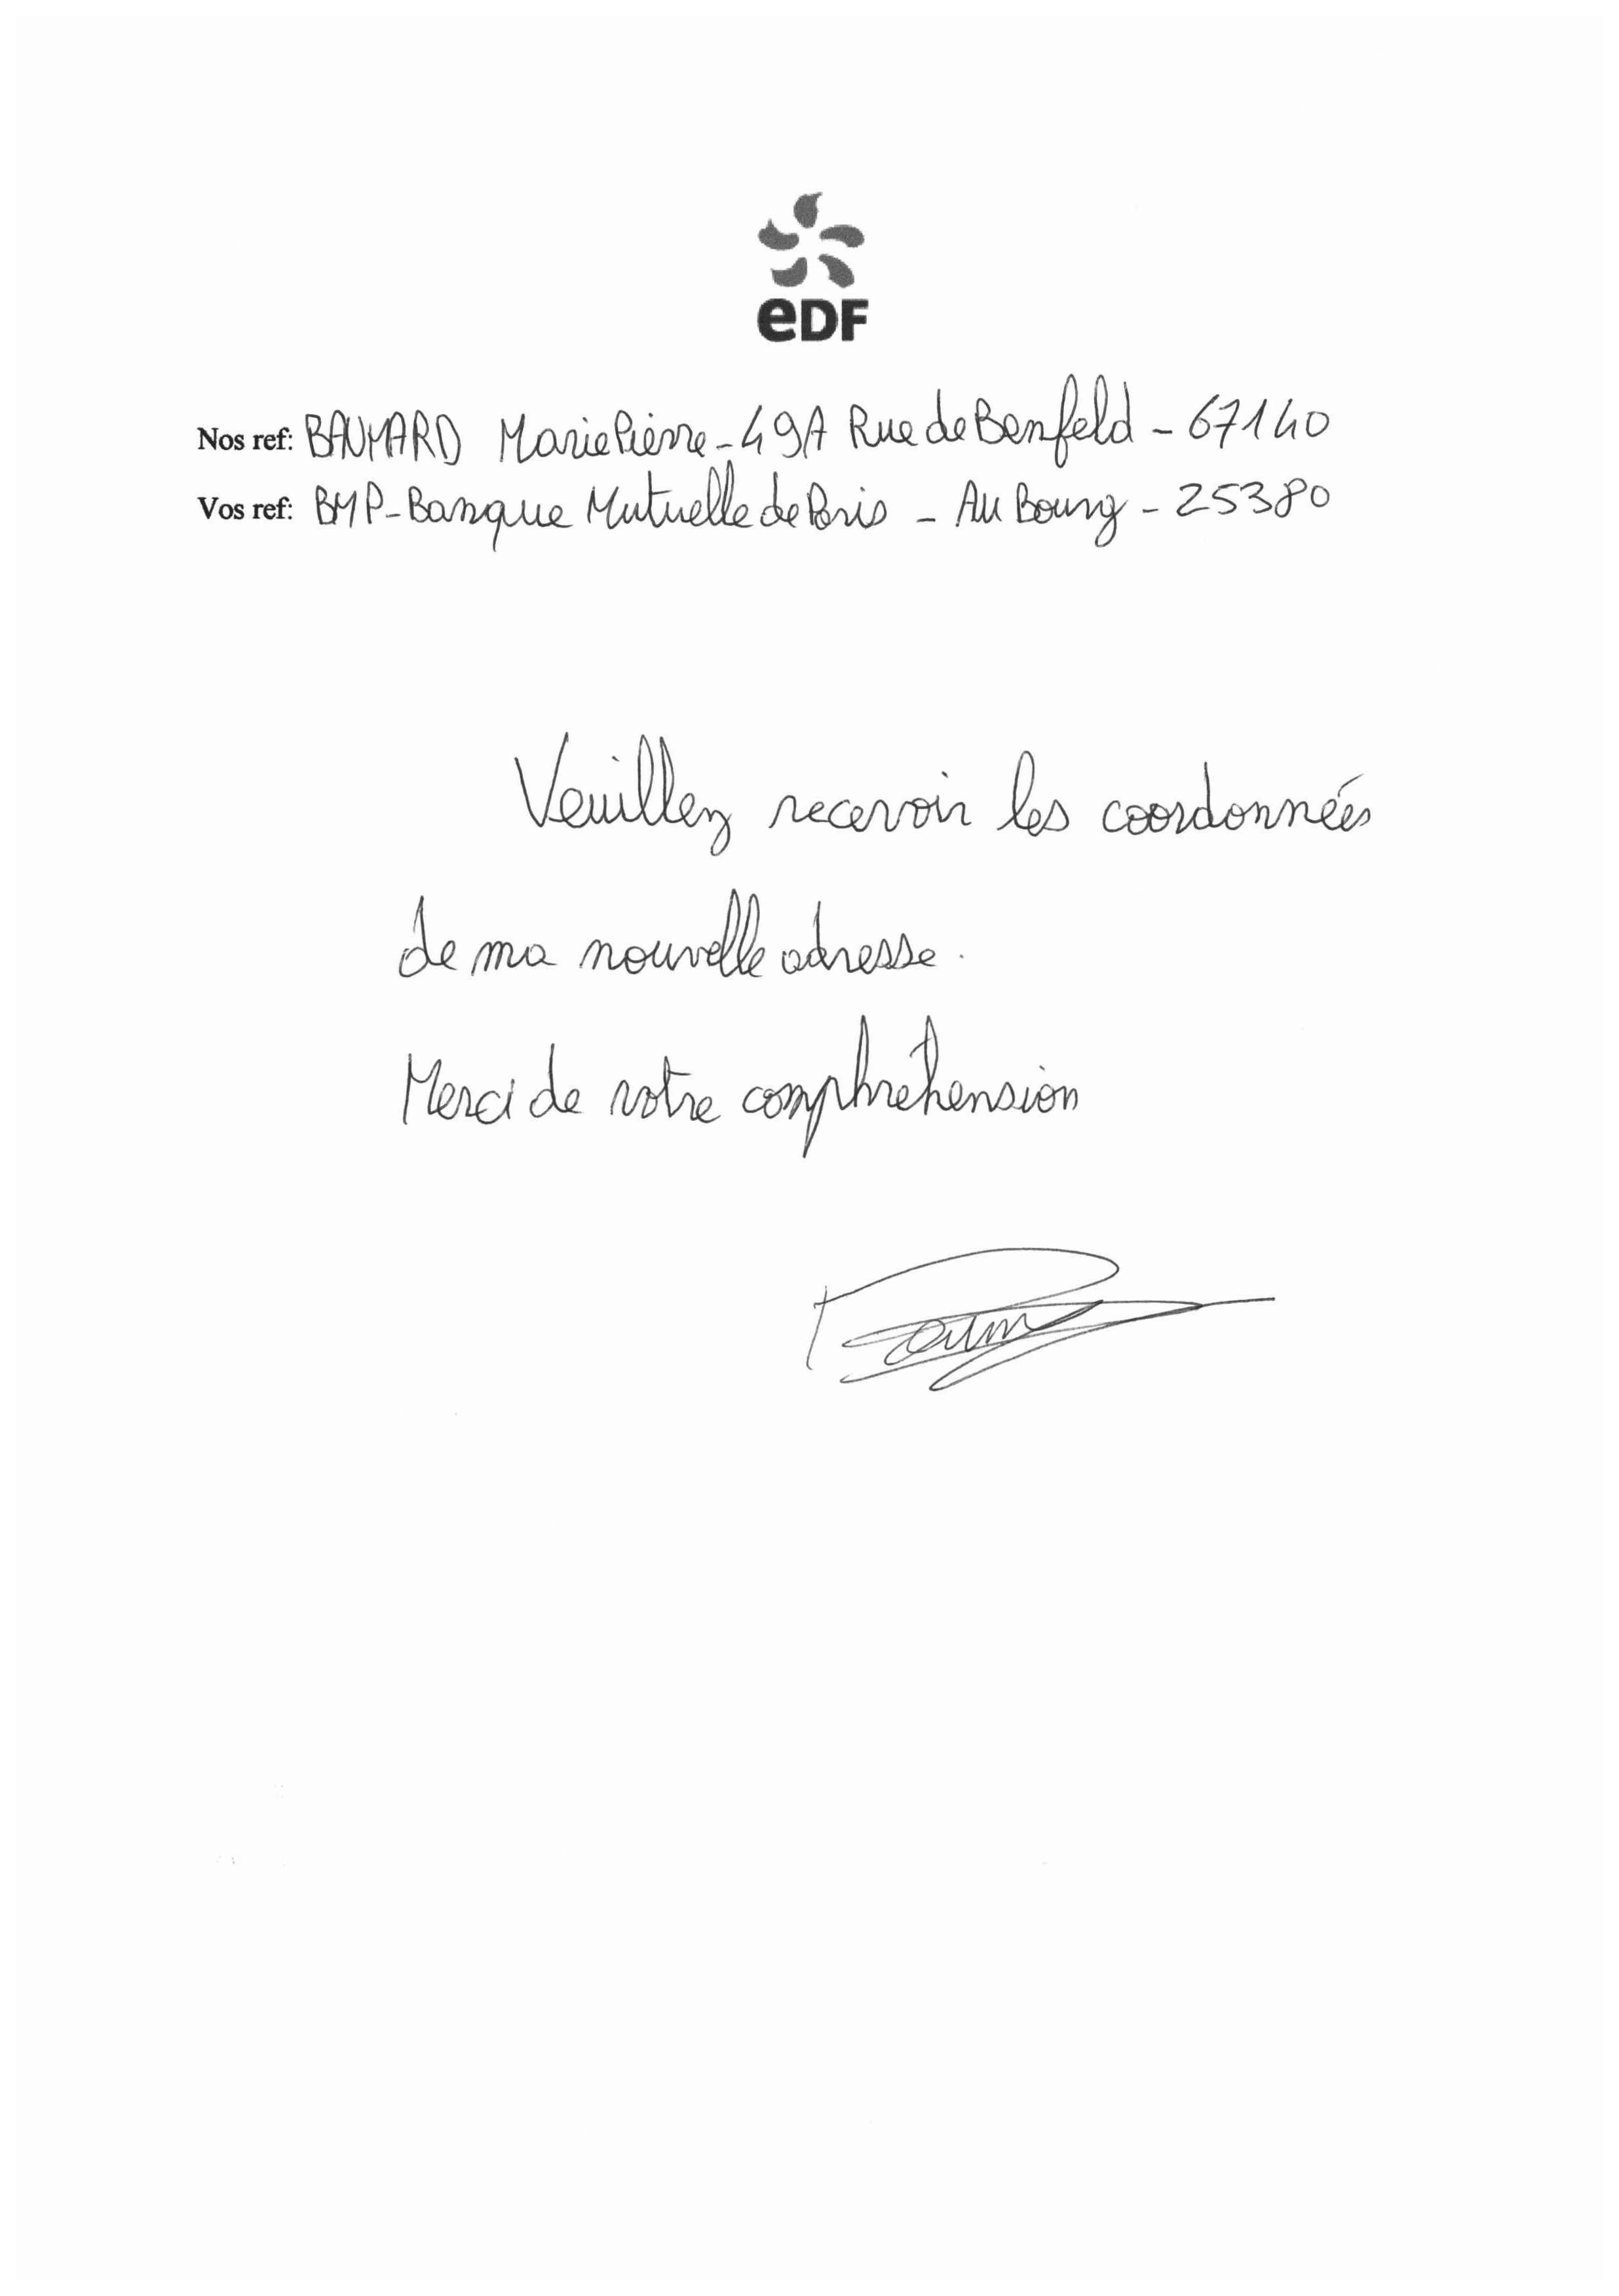 eDF
Nos ref: BAUMARD Marie Pierre - 49A Rue de Benfeld - 67140
Vos ref: BMP - Banque Mutuelle de Paris - Au Bourg - 25380
Veuillez recevoir les coordonnées
de ma nouvelle adresse.
Merci de votre comphréhension